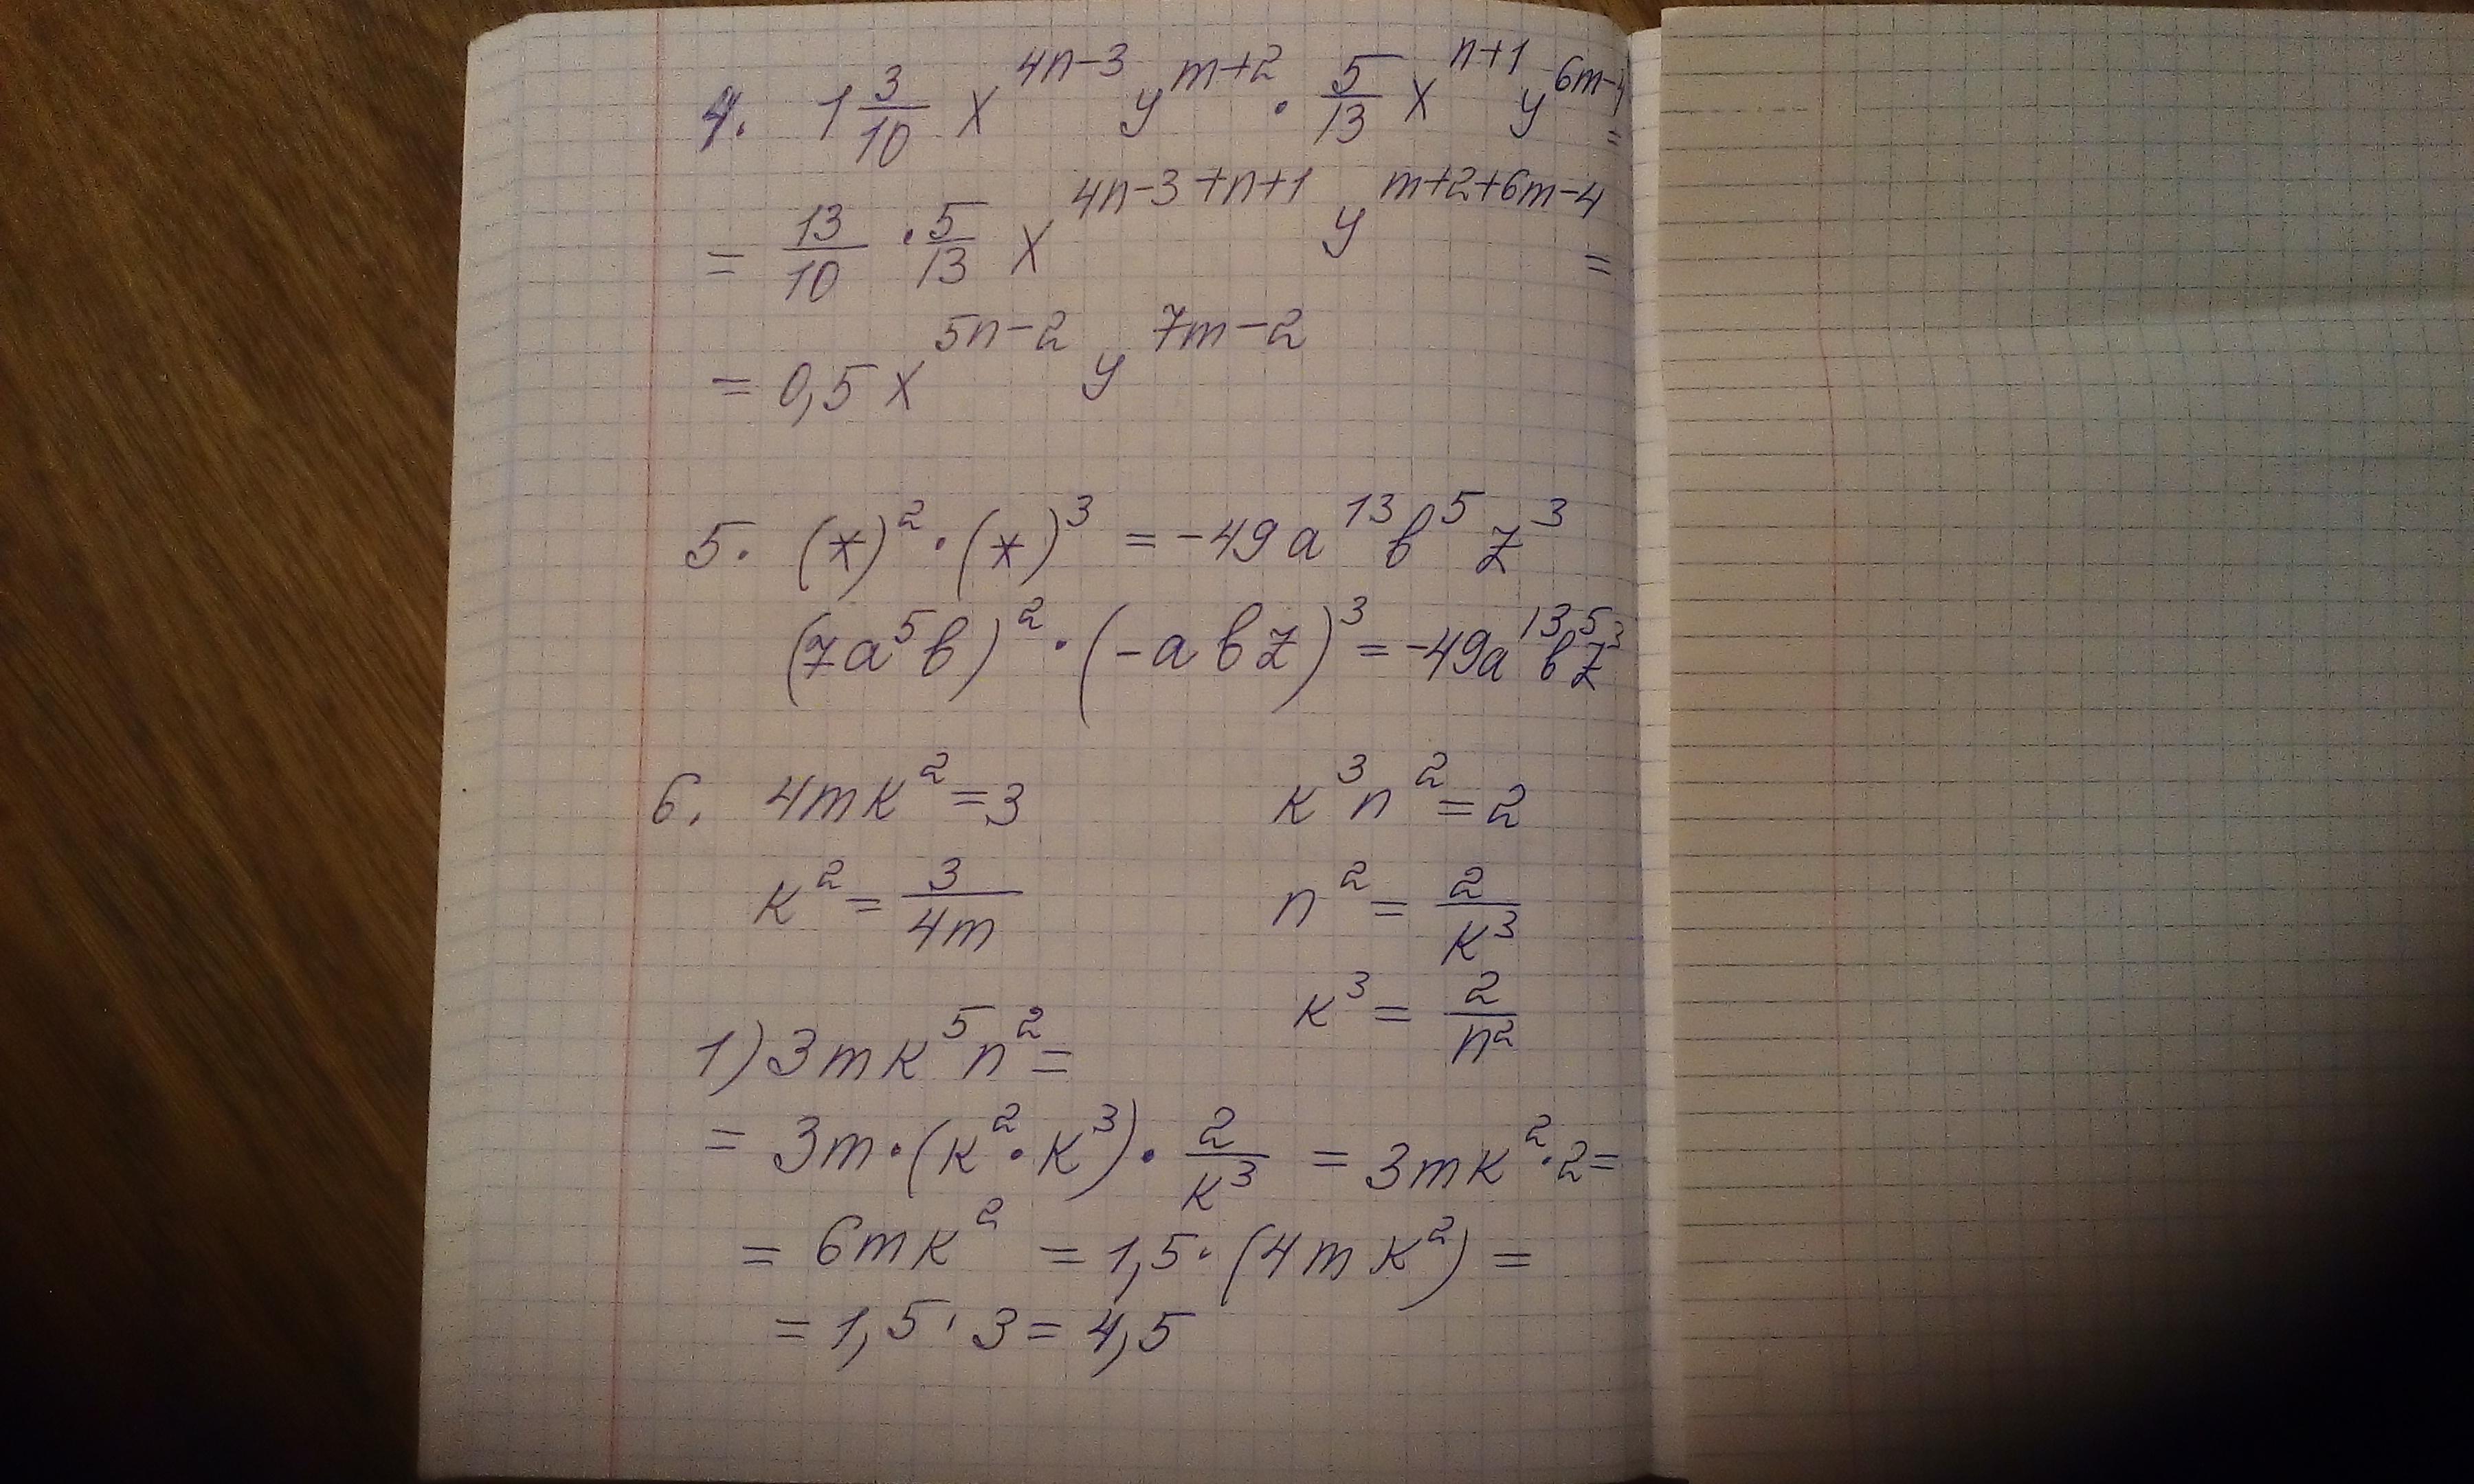 4. 1 3/10 x^(4n-3) y^(m+2) · 5/13 x^(n+1) y^(6m-4) =
= 13/10 · 5/13 x^(4n-3+n+1) y^(m+2+6m-4) =
= 0,5 x^(5n-2) y^(7m-2)
5. (*)² · (*)³ = -49a¹³b⁵z³
(7a⁵b)² · (-abz)³ = -49a¹³b⁵z³
6. 4mk² = 3 k³n² = 2
k² = 3/4m n² = 2/k³
k³ = 2/n²
1) 3mk⁵n² =
= 3m · (k² · k³) · 2/k³ = 3mk² · 2 =
= 6mk² = 1,5 · (4mk²) =
= 1,5 · 3 = 4,5